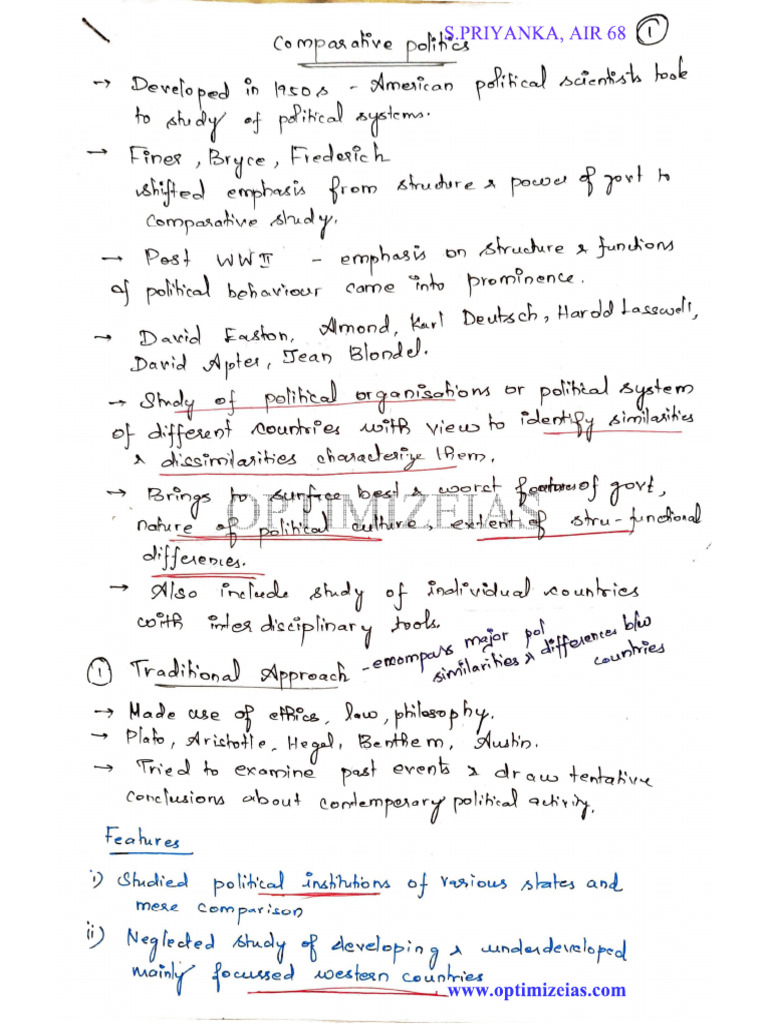 S.PRIYANKA, AIR 68
1
Comparative politics
→ Developed in 1950s - American political scientists took
to study of political systems.
→ Finer, Bryce, Frederich
shifted emphasis from structure & power of govt to
comparative study.
→ Post WWII - emphasis on structure & functions
of political behaviour came into prominence.
→ David Easton, Almond, Karl Deutsch, Harold Lasswell,
David Apter, Jean Blondel.
→ Study of political organisations or political system
of different countries with view to identify similarities
& dissimilarities characterize them.
→ Brings to surface best & worst features of govt,
nature of political culture, extent of stru-functional
differences.
OPTIMIZEIAS
→ Also include study of individual countries
with inter disciplinary tools.
① Traditional Approach - emompass major pol
similarities & differences b/w
countries
→ Made use of ethics, law, philosophy.
→ Plato, Aristotle, Hegel, Benthem, Austin.
→ Tried to examine past events & draw tentative
conclusions about contemperary political activity.
Features
i) Studied political institutions of various states and
mere comparison
ii) Neglected study of developing & underdeveloped
mainly focussed western countries
www.optimizeias.com